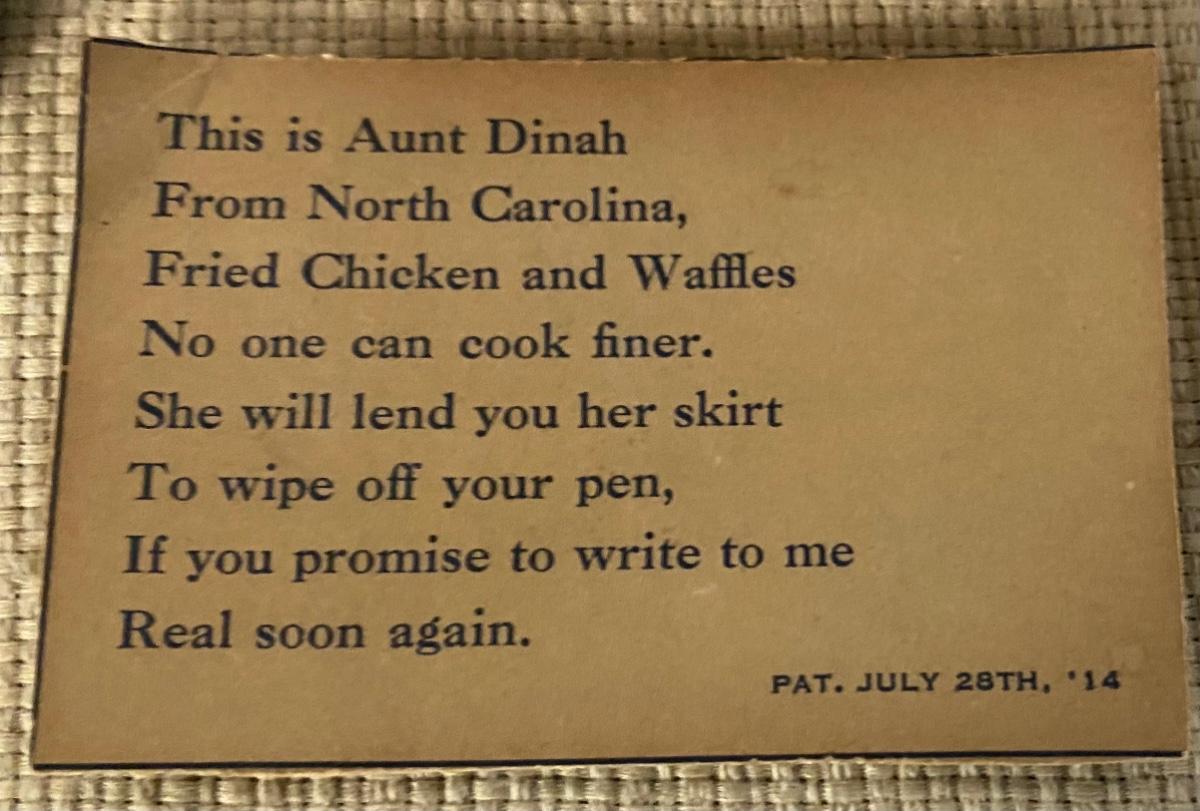 This is Aunt Dinah
From North Carolina,
Fried Chicken and Waffles
No one can cook finer.
She will lend you her skirt
To wipe off your pen,
If you promise to write to me
Real soon again.
PAT. JULY 28TH, '14